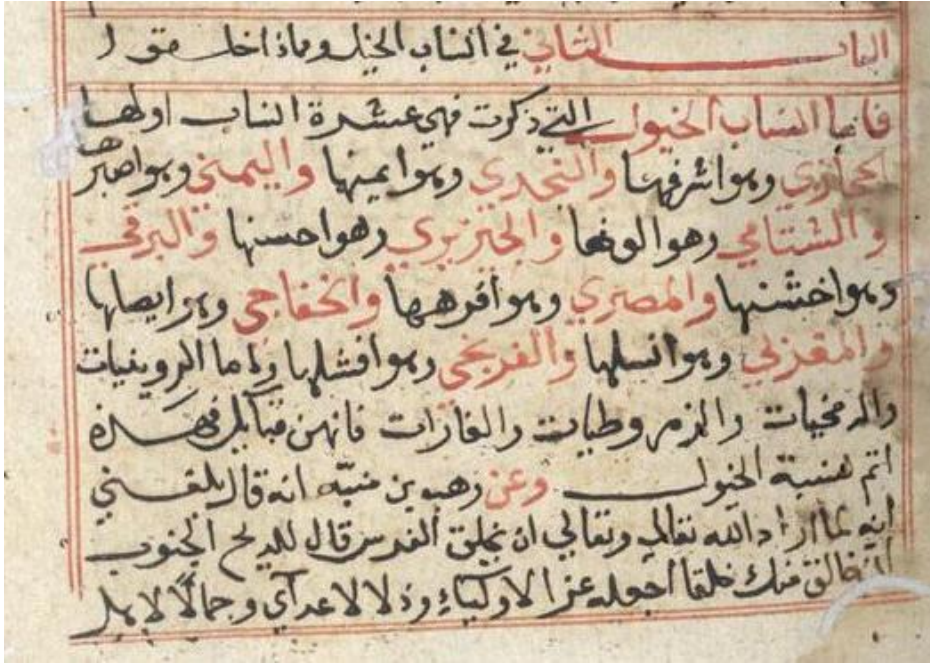 الباب الثاني في انساب الخيل وماذا خلقوا
فاما انساب الخيول التي ذكرت فهي عشرة انساب اولها
الحجازي وهو اشرفها والنجدي وهو ايمنها واليمني وهو اصبرها
والشامي وهو الونها والجزيري وهو احسنها والبرقي
وهو اخشنها والمصري وهو افرهها والخفاجي وهو ايصلها
والمغربي وهو انسلها والفرنجي وهو افشلها واما الروينيات
والدمخيات والزمروطيات والغارات فانهن قبايل فهذه
اتم نسبة الخيول وعن وهب بن منبه انه قال بلغني
انه لما اراد الله تعالي ان يخلق الفرس قال للريح الجنوب
اني خالق منك خلقا اجعله عزا لاوليائي وذلا لاعدآي وجمالا لاهل